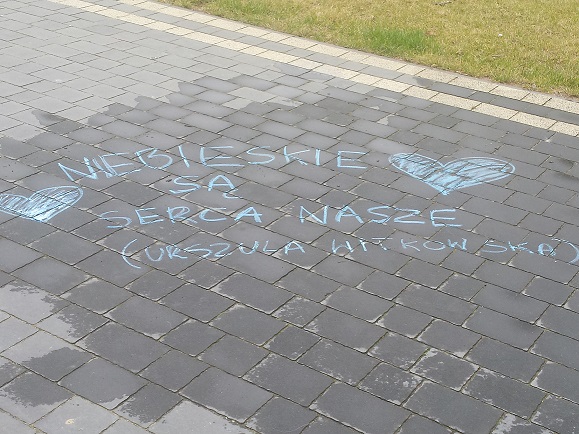 NIEBIESKIE
SĄ
SERCA NASZE
(URSZULA WITKOWSKA)